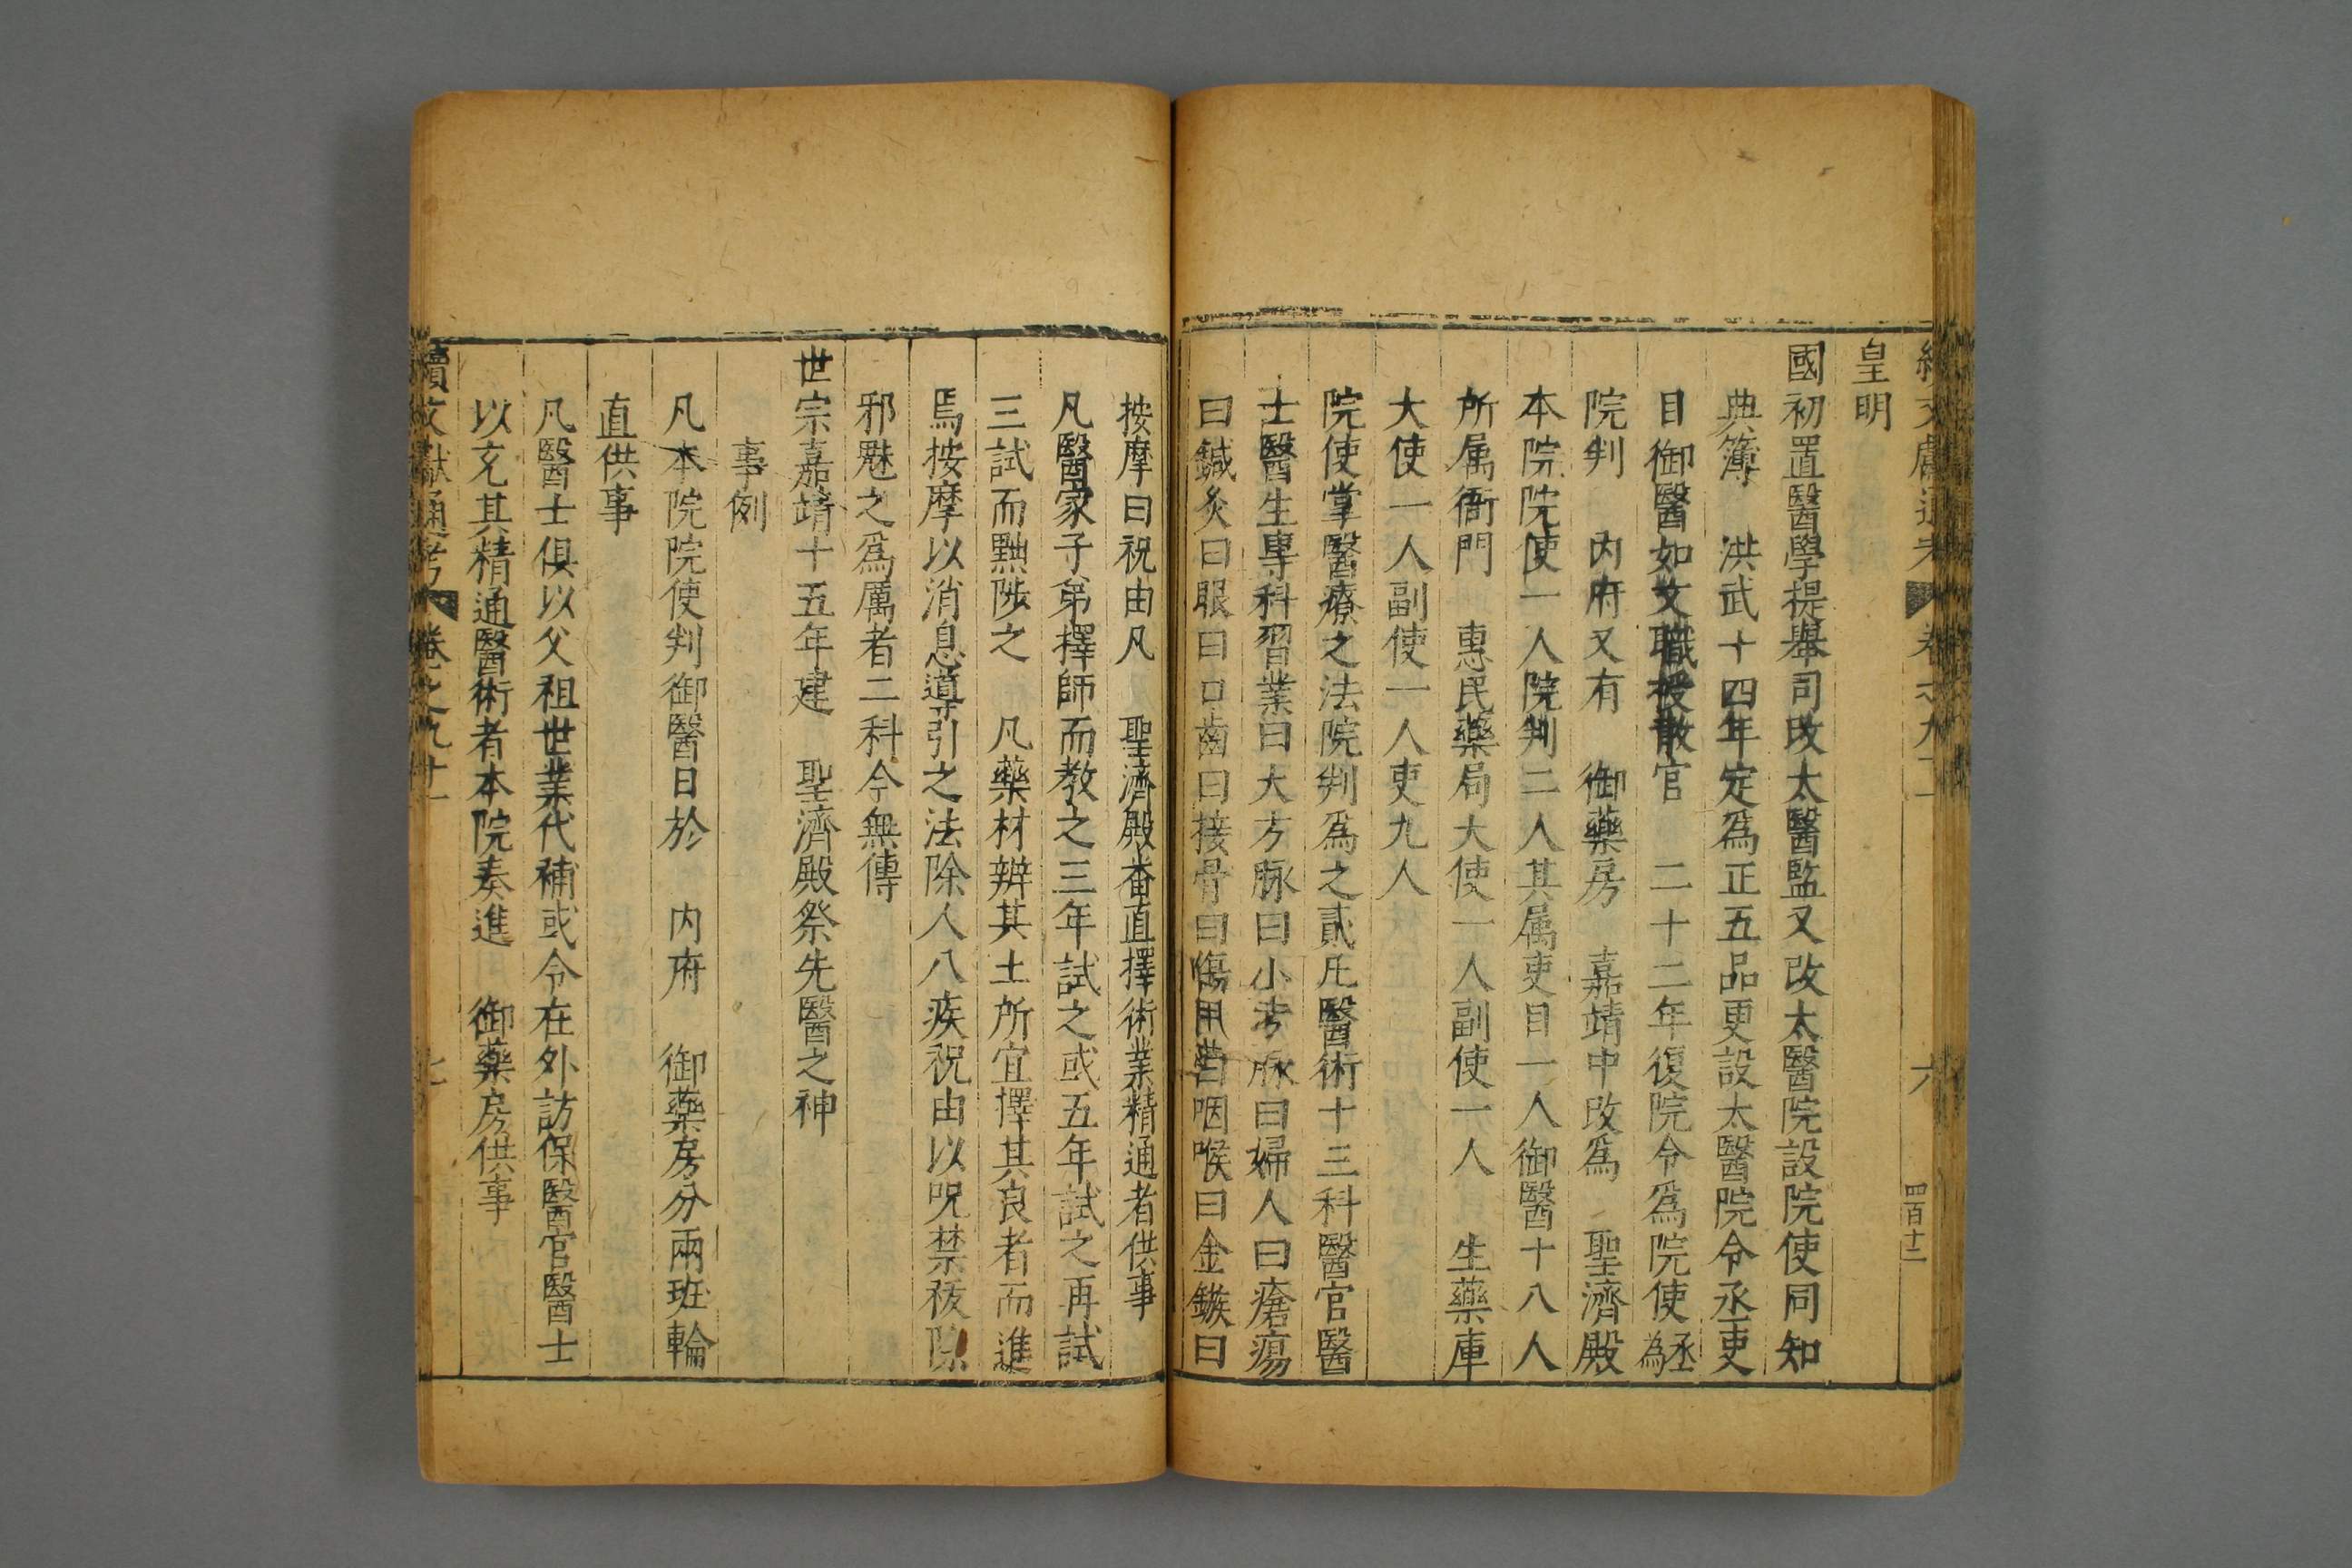 皇明
國初置醫學提舉司改太醫監又改太醫院設院使同知
典簿　洪武十四年定爲正五品更設太醫院令丞吏
目御醫如文職授散官　二十二年復院令爲院使丞爲
院判　内府又有　御藥房　嘉靖中改爲　聖濟殿
本院院使一人院判二人其属吏目一人御醫十八人
所属衙門　惠民藥局大使一人副使一人　生藥庫
大使一人副使一人吏九人
院使掌醫療之法院判爲之貳凡醫術十三科醫官醫
士醫生專科習業曰大方脉曰小方脉曰婦人曰瘡瘍
曰鍼灸曰眼曰口齒曰接骨曰傷寒曰咽喉曰金鏃曰
按摩曰祝由凡　聖濟殿畨直擇術業精通者供事
凡醫家子弟擇師而教之三年試之或五年試之再試
三試而黜陟之　凡藥材辨其土所宜擇其良者而進
焉按摩以消息導引之法除人八疾祝由以呪禁祓除
邪魅之爲厲者二科今無傳
世宗嘉靖十五年建　聖濟殿祭先醫之神
事例
凡本院院使判御醫日於　内府　御藥房分兩班輪
直供事
凡醫士俱以父祖世業代補或令在外訪保醫官醫士
以充其精通醫術者本院奏進　御藥房供事
續文獻通考　卷之九十一　七
六　四百十二